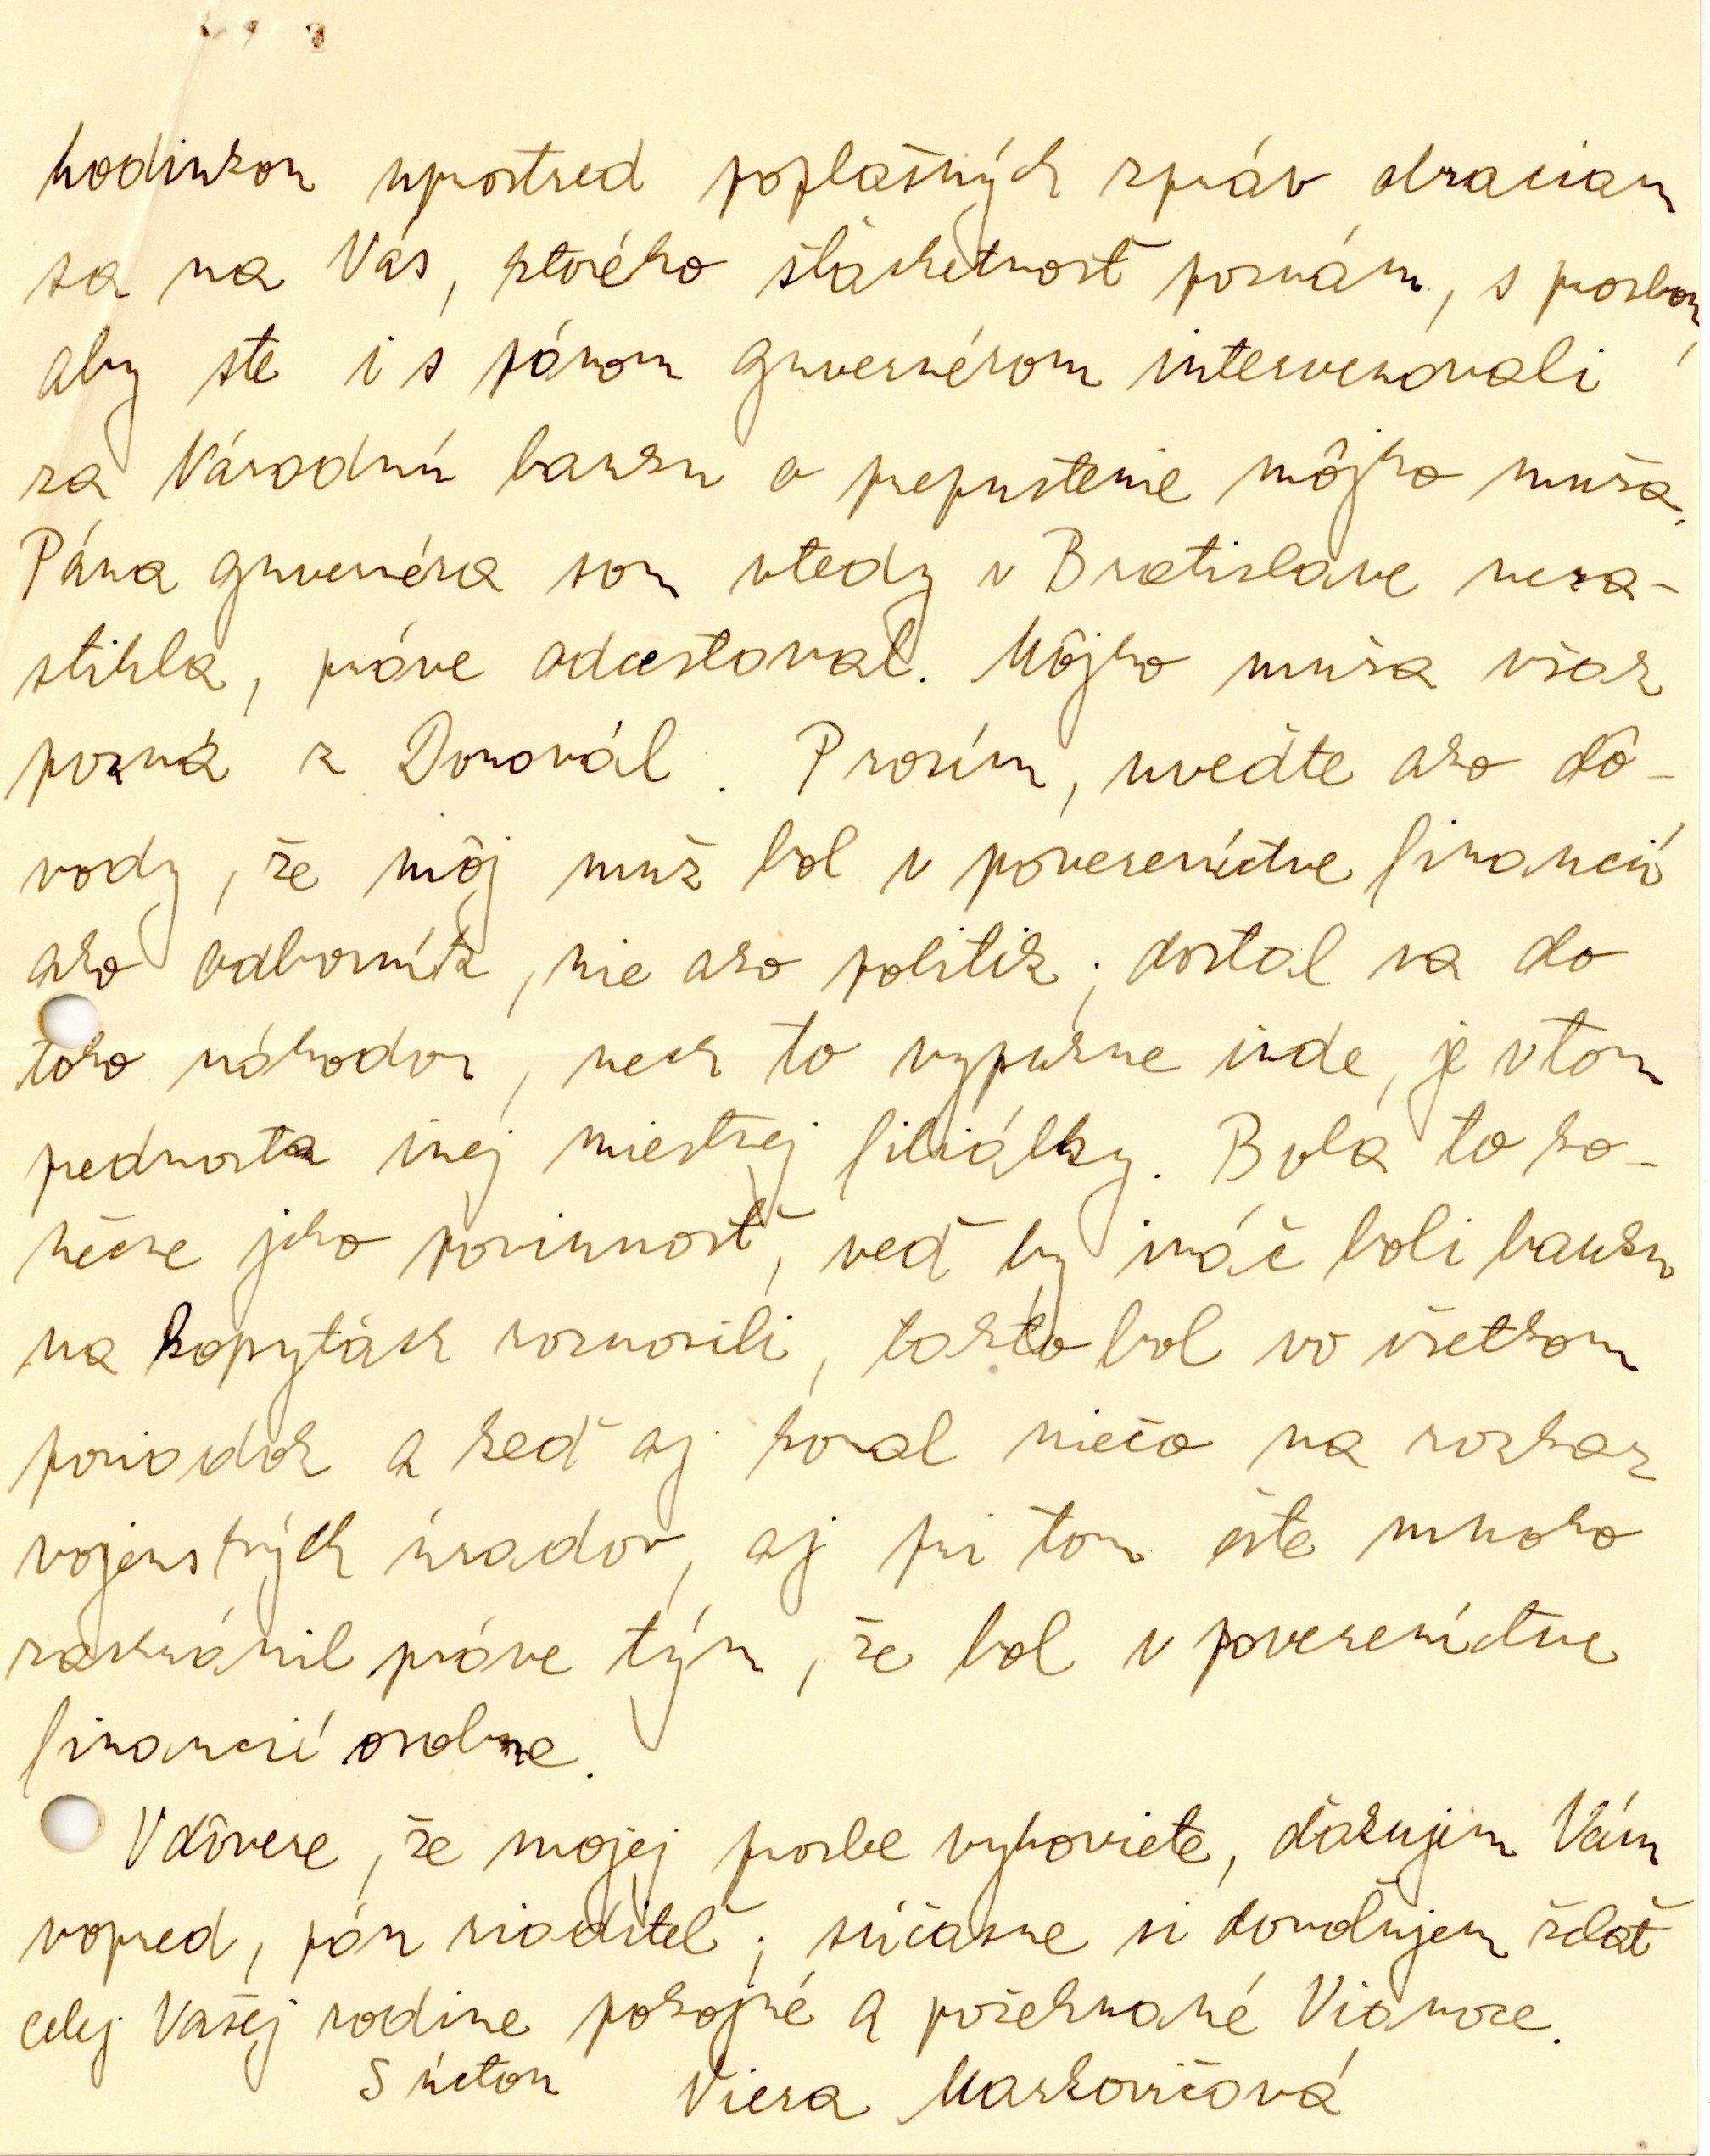 hodinkou uprostred poplašných zpráv obraciam
sa na Vás, ktorého šľachetnosť poznám, s prosbou,
aby ste i s pánom guvernérom intervenovali
za Národnú banku o prepustenie môjho muža.
Pána guvernéra som vtedy v Bratislave neza-
stihla, práve odcestoval. Môjho muža však
pozná z Donovál. Prosím, uveďte ako dô-
vody, že môj muž bol v povereníctve financií
ako odborník, nie ako politik; dostal sa do
toho náhodou, nech to vypukne inde, je v tom
prednosta inej miestnej filiálky. Bola to ko-
nečne jeho povinnosť, veď by ináč boli banku
na kopytách roznosili, takto bol vo všetkom
poriadok a keď aj konal niečo na rozkaz
vojenských úradov, aj pri tom ešte mnoho
zachránil práve tým, že bol v povereníctve
financií osobne.
V dôvere, že mojej prosbe vyhoviete, ďakujem Vám
vopred, pán riaditeľ; súčasne si dovoľujem želať
celej Vašej rodine pokojné a požehnané Vianoce.
S úctou Viera Markovičová